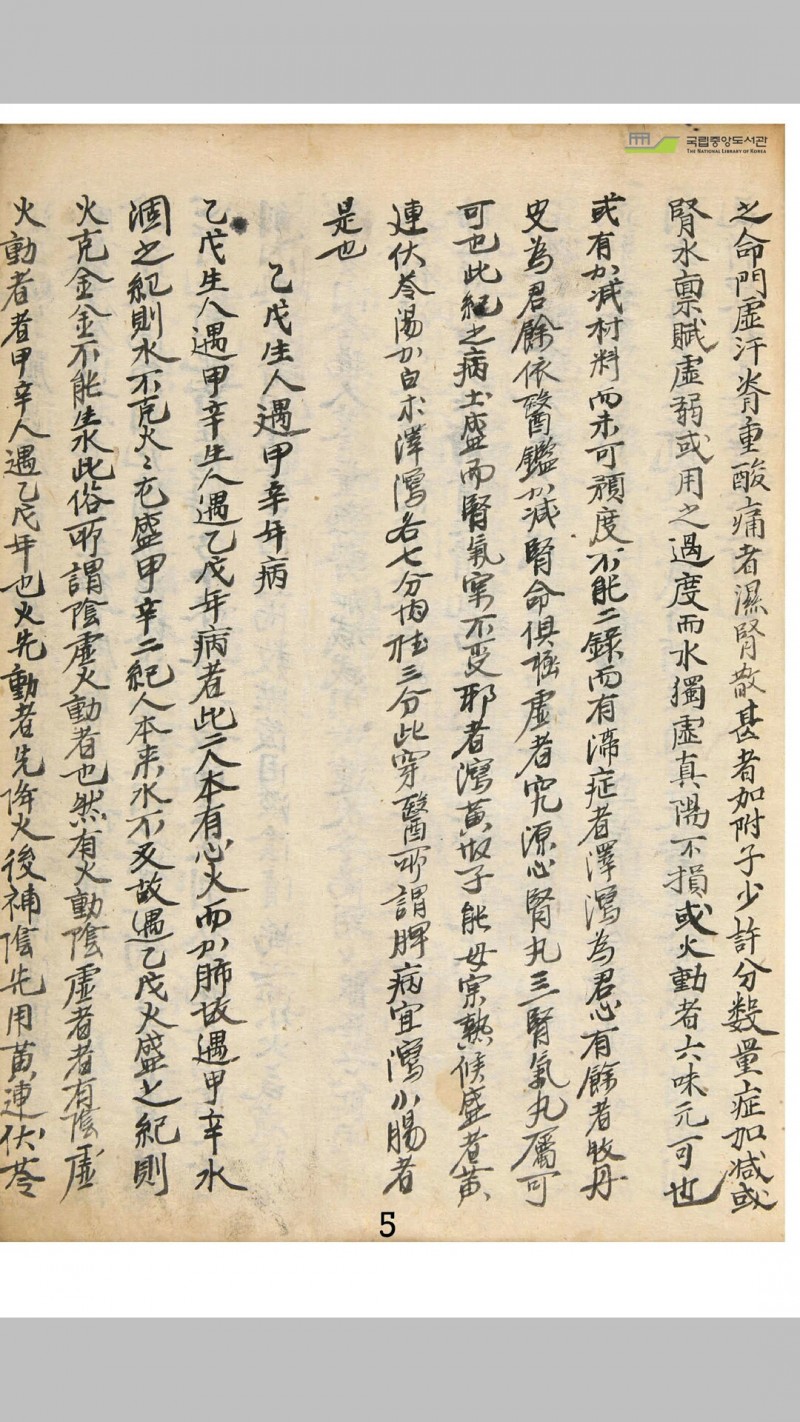 국립중앙도서관
THE NATIONAL LIBRARY OF KOREA
之命門虛汗脊重酸痛者濕腎散甚者加附子少許分數量症加减或
腎水稟賦虛弱或用之過度而水獨虛真陽不損或火動者六味元可也
或有加减材料而未可預度不能二錄而有滯症者澤瀉為君心有餘者牧丹
皮為君餘依醫鑑加减腎命俱極虛者究源心腎丸三腎氣丸屬可
可也此紀之病土盛而腎氣不受邪者瀉黃栀子能毋宗熱候盛者黃
連伏苓湯加白朮澤瀉各七分肉桂三分此穿醫所謂脾病宜瀉小腸者
是也
乙戊生人遇甲辛年病
乙戊生人遇甲辛生人遇乙戊年病者此二人本有心火而加肺故遇甲辛水
涸之紀則水不克火〻尤盛甲辛二紀人本来水不及故遇乙戊火盛之紀則
火克金金不能生水此俗所謂陰虛火動者也然有火動陰虛者者有陰虛
火動者者甲辛人遇乙戊年也火先動者先降火後補陰先用黃連伏苓
5